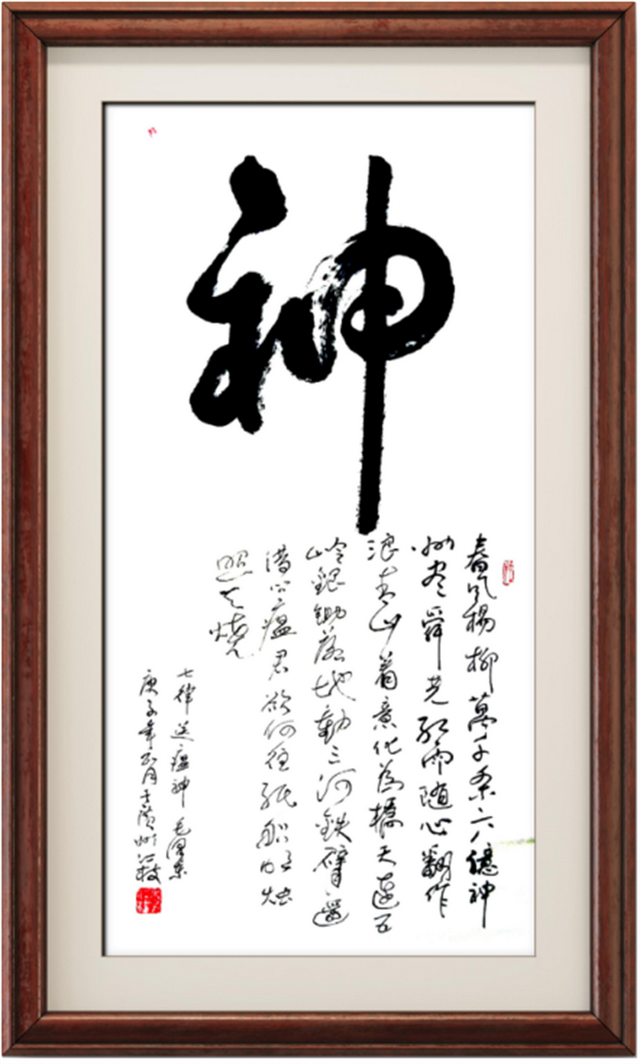 神
春风楊柳萬千条六億神
州尽舜尧红雨随心翻作
浪青山着意化為橋天連五
岭銀鋤落地動三河鉄臂遥
借问瘟君欲何往纸船明烛
照天烧
七律送瘟神毛泽东
庚子年正月于廣州